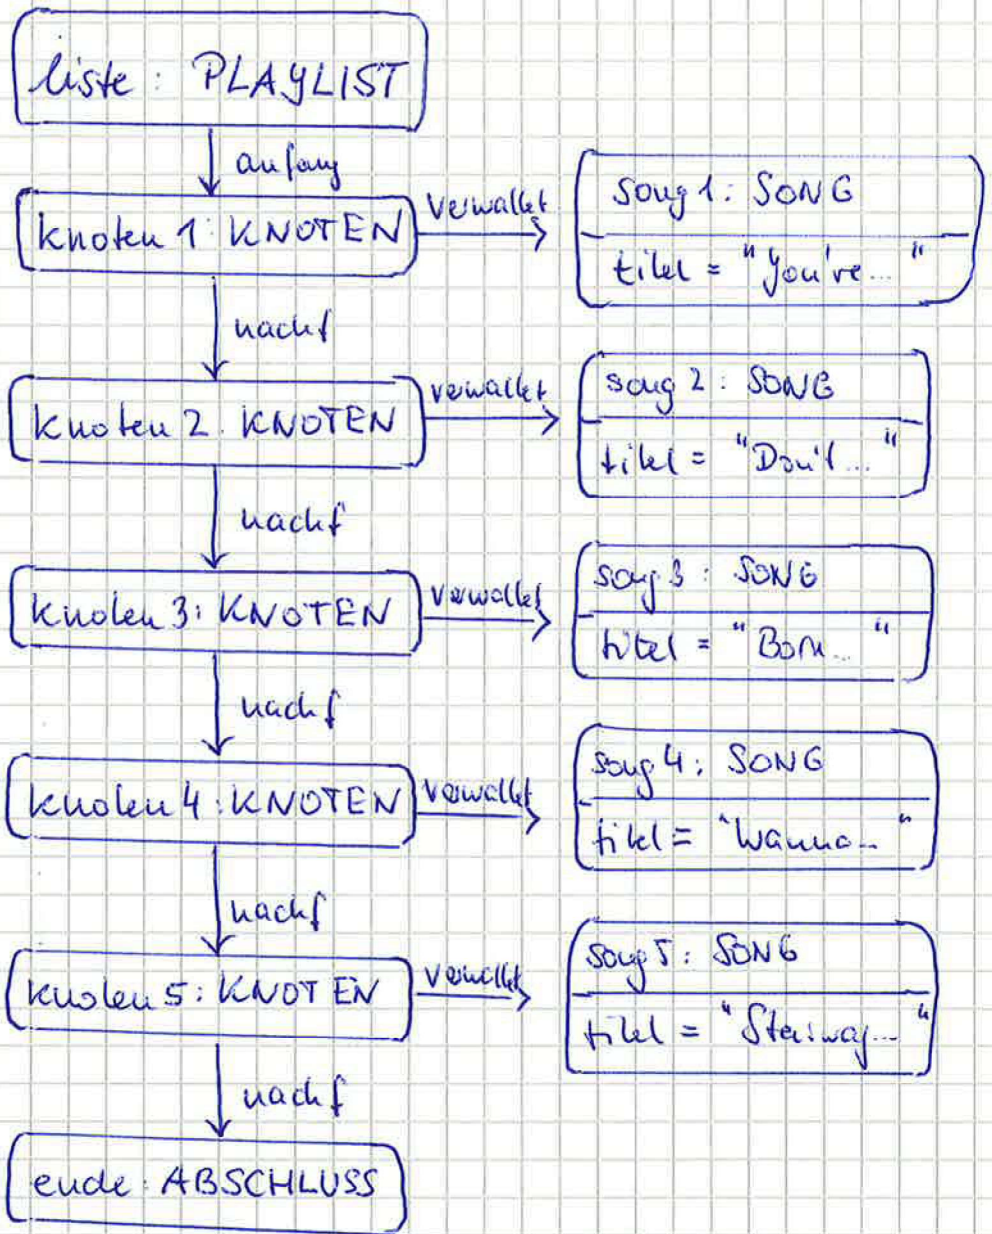 liste: PLAYLIST
anfang
knoten 1: KNOTEN
verwaltet
song 1: SONG
titel = "You're..."
nachf
knoten 2: KNOTEN
verwaltet
song 2: SONG
titel = "Don't..."
nachf
knoten 3: KNOTEN
verwaltet
song 3: SONG
titel = "Born..."
nachf
knoten 4: KNOTEN
verwaltet
song 4: SONG
titel = "Wanna..."
nachf
knoten 5: KNOTEN
verwaltet
song 5: SONG
titel = "Stairway..."
nachf
ende: ABSCHLUSS